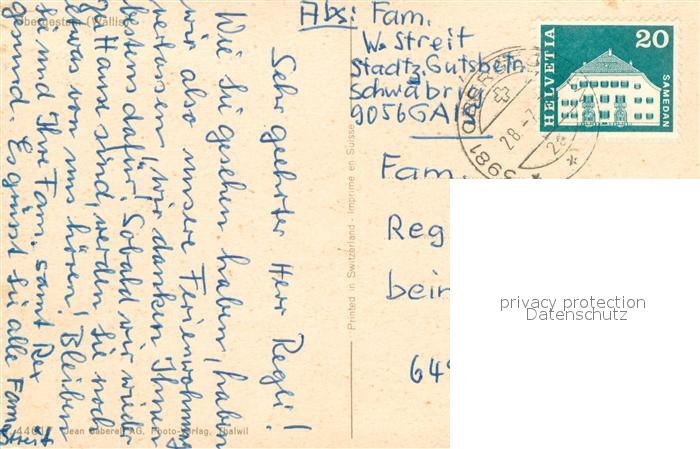 Obergesteln (Wallis)
Abs: Fam.
W. Streit
Stadtz. Gutsbetr.
Schwäbrig
9056 GAI
HELVETIA
20
SAMEDAN
3981 OBERG
28.
Fam.
Reg
bein
649
privacy protection
Datenschutz
Printed in Switzerland - Imprimé en Suisse
Sehr geehrter Herr Regli!
Wie Sie gesehen haben, haben
wir also unsere Ferienwohnung
verlassen, wir danken Ihnen
bestens dafür! Sobald wir wieder
z Hause sind, werden Sie noch
etwas von uns hören! Bleiben
Sie und Ihre Fam. samt Rex
gesund. Es grüsst Sie alle Fam.
Streit
Jean Gaberell AG, Photo-Verlag, Thalwil